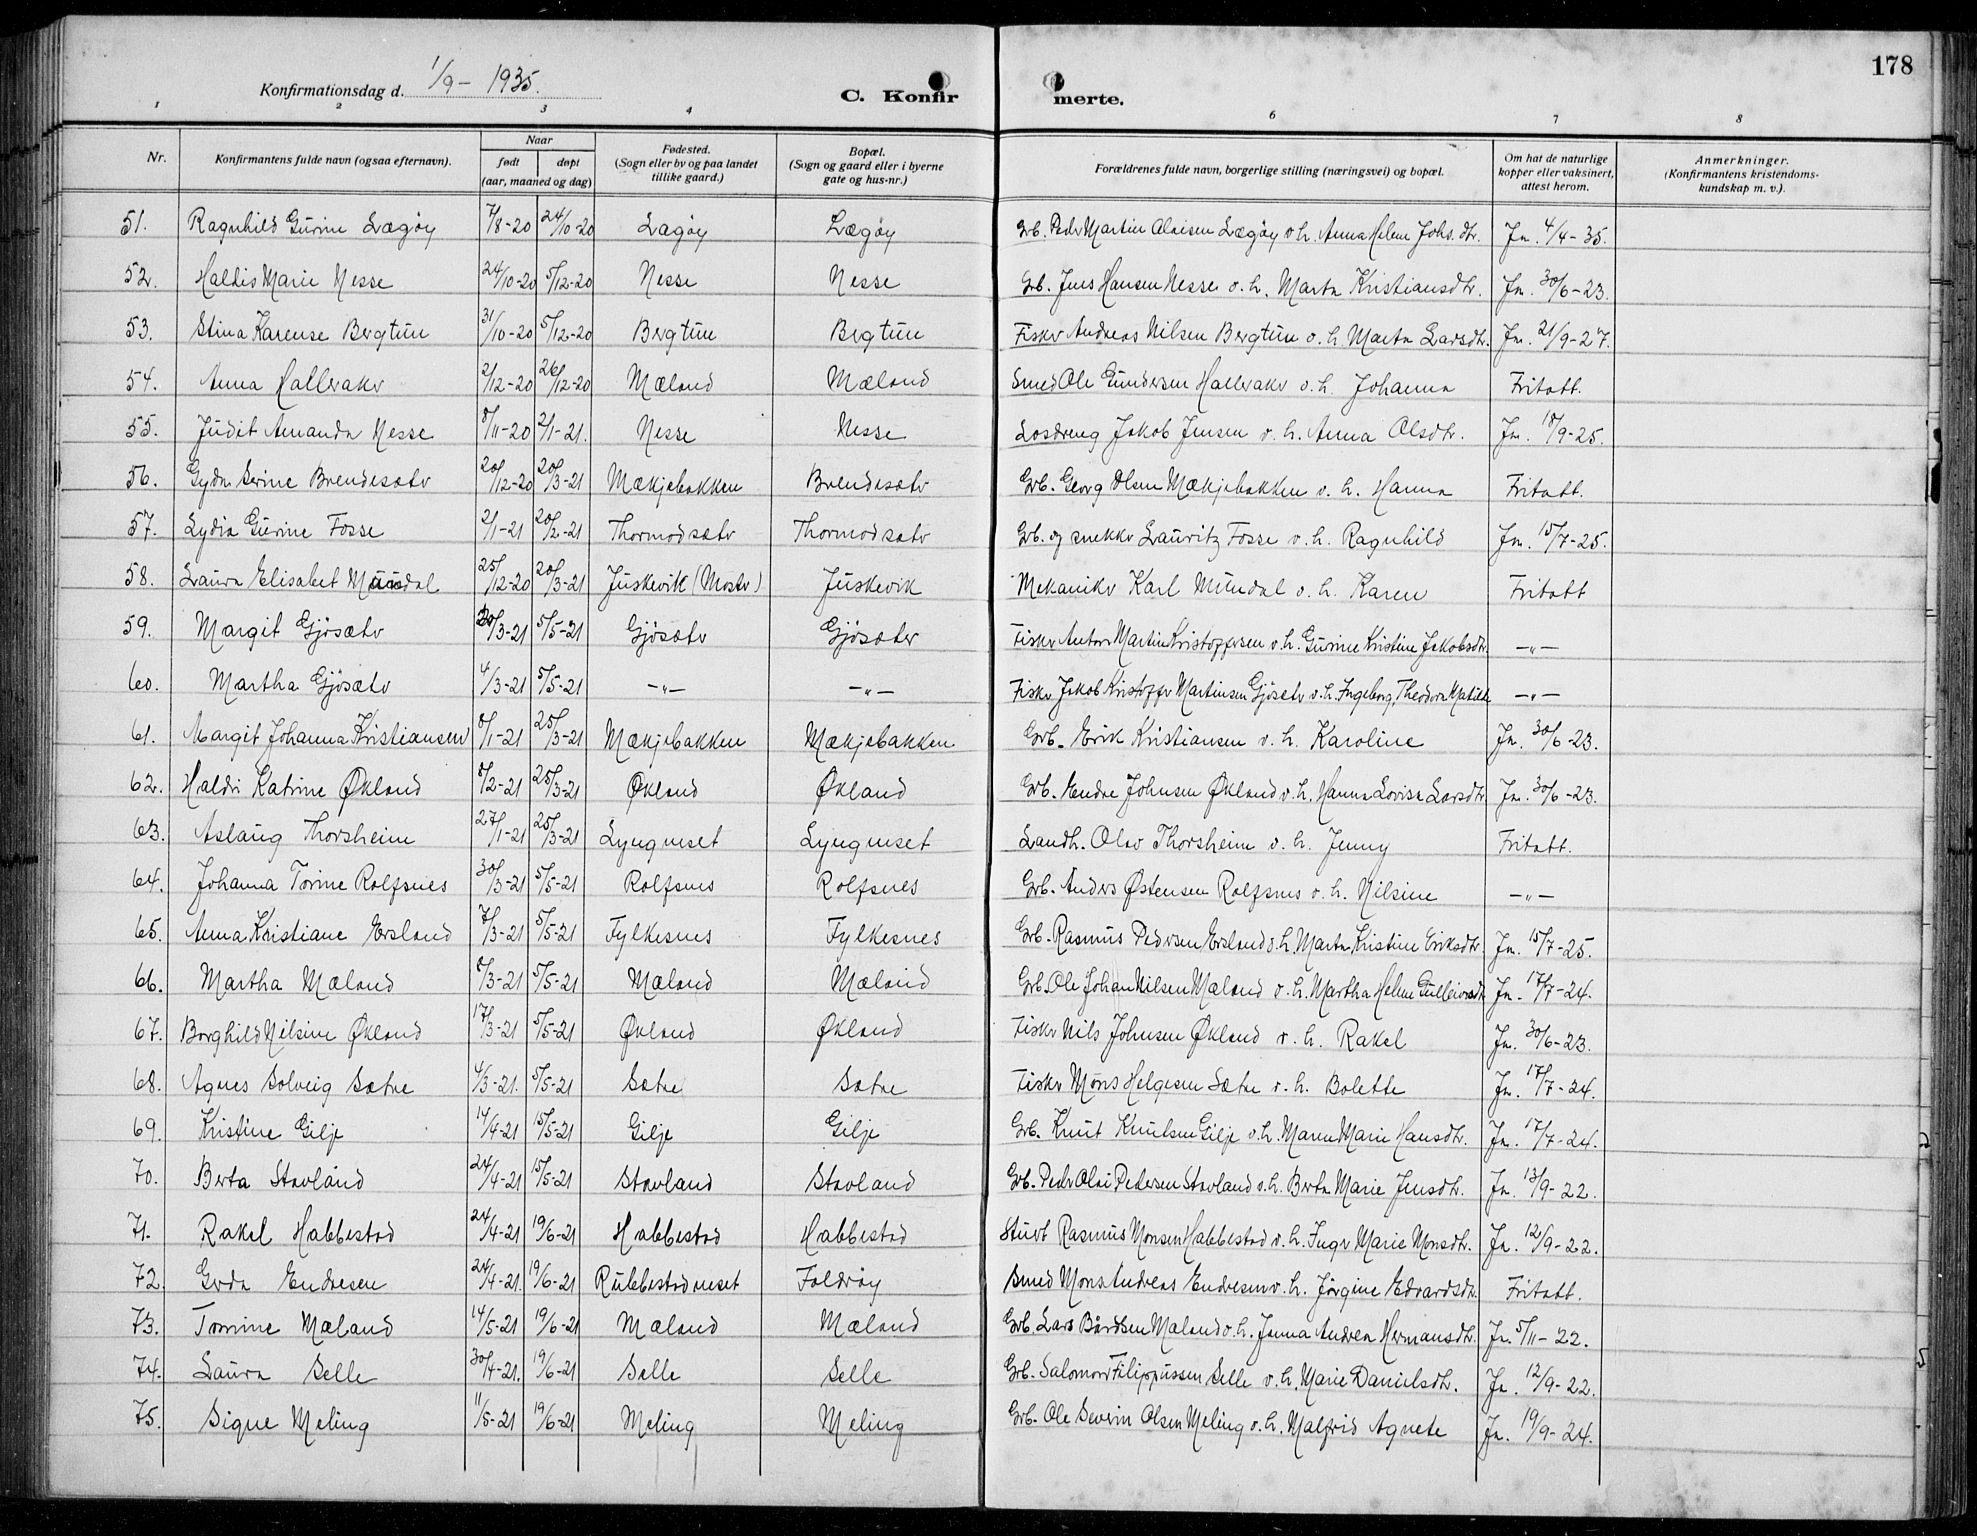 178
Konfirmationsdag d. 1/9 - 1935.
C. Konfirmerte.
1 2 3 4 6 7 8
Nr. Konfirmantens fulde navn (ogsaa efternavn). Naar født døpt (aar, maaned og dag) Fødested. (Sogn eller by og paa landet tillike gaard.) Bopæl. (Sogn og gaard eller i byerne gate og hus-nr.) Forældrenes fulde navn, borgerlige stilling (næringsvei) og bopæl. Om hat de naturlige kopper eller vaksinert, attest herom. Anmerkninger. (Konfirmantens kristendomskundskap m. v.).
51. Ragnhild Gurine Lægøy 7/8-20 24/10-20 Lægøy Lægøy Grb. Peder Martin Olaisen Lægøy o.h. Anna Helene Johs.dtr. Ja. 4/4-35.
52. Haldis Marie Nesse 24/10-20 5/12-20 Nesse Nesse Grb. Jens Hansen Nesse o.h. Marta Kristiansdtr. Ja. 30/6-23.
53. Stina Karense Bergtun 31/10-20 5/12-20 Bergtun Bergtun Fisker Andreas Nilsen Bergtun o.h. Marta Larsdtr. Ja. 21/9-27.
54. Anna Halleraker 2/12-20 26/12-20 Mæland Mæland Smed Ole Gundersen Halleraker o.h. Johanna Fritatt.
55. Judit Amanda Nesse 8/11-20 2/1-21. Nesse Nesse Losdreng Jakob Jensen o.h. Anna Olsdtr. Ja. 18/9-25.
56. Gyda Serine Brendesæter 20/12-20 20/3-21 Mækjebakken Brendesæter Grb. Georg Olsen Mækjebakken o.h. Hanna Fritatt.
57. Lydia Gurine Fosse 2/1-21 20/2-21 Thormodsæter Thormodsæter Grb. og snekker Lauritz Fosse o.h. Ragnhild Ja. 15/7-25.
58. Laura Elisabet Mundal 25/12-20 20/3-21 Juskevik (Moster) Juskevik Mekaniker Karl Mundal o.h. Karen Fritatt
59. Margit Gjøsæter 20/3-21 5/5-21 Gjøsæter Gjøsæter Fisker Anton Martin Kristoffersen o.h. Gurine Kristine Jakobsdtr. —"—
60. Martha Gjøsæter 4/3-21 5/5-21 —"— —"— Fisker Jakob Kristoffer Martinsen Gjøsæter o.h. Ingeborg Theodora Matilde —"—
61. Margit Johanna Kristiansen 8/1-21 25/3-21 Mækjebakken Mækjebakken Grb. Erik Kristiansen o.h. Karoline Ja. 30/6-23.
62. Haldri Katrine Økland 8/2-21 25/3-21 Økland Økland Grb. Endre Johnsen Økland o.h. Hanna Lovise Larsdtr. Ja. 30/6-23.
63. Aslaug Thorsheim 27/1-21 25/3-21 Lyngneset Lyngneset Landh. Olav Thorsheim o.h. Jenny Fritatt.
64. Johanna Torine Rolfsnes 30/3-21 5/5-21 Rolfsnes Rolfsnes Grb. Anders Østensen Rolfsnes o.h. Nilsine —"—
65. Anna Kristiane Ersland 7/3-21 5/5-21 Fylkesnes Fylkesnes Grb. Rasmus Pedersen Ersland o.h. Marta Kristine Eriksdtr. Ja. 15/7-25.
66. Martha Mæland 8/3-21 5/5-21 Mæland Mæland Grb. Ole Johan Nilsen Mæland o.h. Martha Helene Gulleivsdtr. Ja. 17/7-24.
67. Borghild Nilsine Økland 17/3-21 5/5-21 Økland Økland Fisker Nils Johnsen Økland o.h. Rakel Ja. 30/6-23.
68. Agnes Solveig Sætre 4/3-21. 5/5-21 Sætre Sætre Fisker Møns Helgesen Sætre o.h. Bolette Ja. 17/7-24.
69. Kristine Gilje 14/4-21 15/5-21 Gilje Gilje Grb. Knut Knutsen Gilje o.h. Maren Marie Hansdtr. Ja. 17/7-24.
70. Berta Stavland 24/4-21 15/5-21 Stavland Stavland Grb. Peder Olai Pedersen Stavland o.h. Berta Marie Jensdtr. Ja. 13/9-22.
71. Rakel Habbestad 24/4-21 19/6-21 Habbestad Habbestad Stuert Rasmus Monsen Habbestad o.h. Inger Marie Monsdtr. Ja. 12/9-22.
72. Gerda Endresen 24/4-21. 19/6-21 Rubbestadneset Foldrøy Smed Mons Andreas Endresen o.h. Jørgine Edvardsdtr. Fritatt.
73. Tomine Mæland 14/5-21 19/6-21 Mæland Mæland Grb. Lars Bårdsen Mæland o.h. Janna Andrea Hermansdtr. Ja. 5/11-22.
74. Laura Selle 30/4-21. 19/6-21 Selle Selle Grb. Salomon Filippussen Selle o.h. Marie Danielsdtr. Ja. 12/9-22.
75. Signe Meling 11/5-21 19/6-21 Meling Meling Grb. Ole Severin Olsen Meling o.h. Malfrid Agnete Ja. 19/9-24.